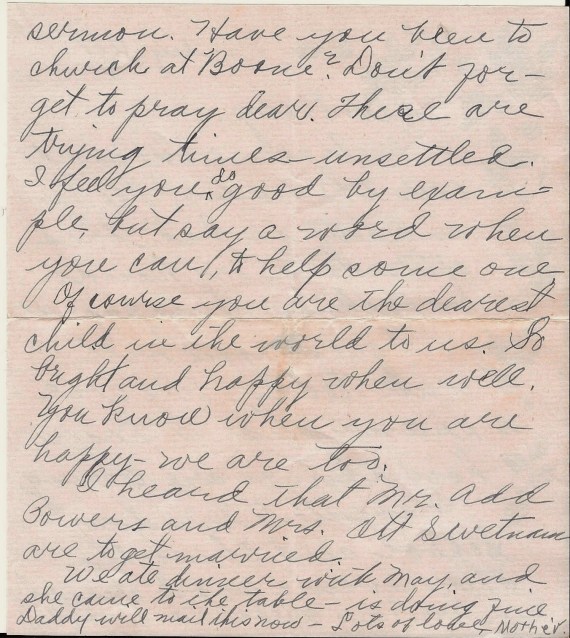 sermon. Have you been to
church at Boone? Don't for-
get to pray dear. These are
trying times - unsettled.
I feel you do good by exam-
ple, but say a word when
you can, to help some one
Of course you are the dearest
child in the world to us. So
bright and happy when well.
You know when you are
happy - we are too.
I heard that Mr. Add
Powers and Mrs. Ott Swetnam
are to get married.
We ate dinner with May, and
she came to the table - is doing fine
Daddy will mail this now - Lots of love, Mother.